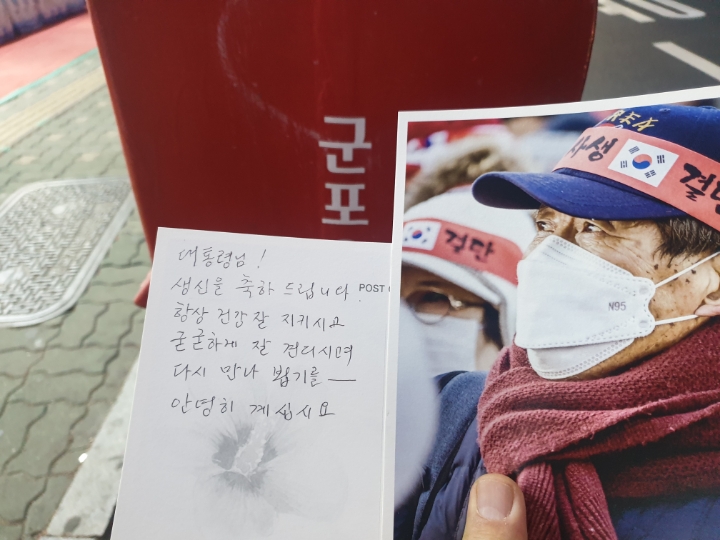 군포
POST
대통령님!
생신을 축하 드립니다.
항상 건강 잘 지키시요
굳굳하게 잘 견디시며
다시 만나 뵙기를 —
안녕히 계십시요
사생 결단
결단
N95